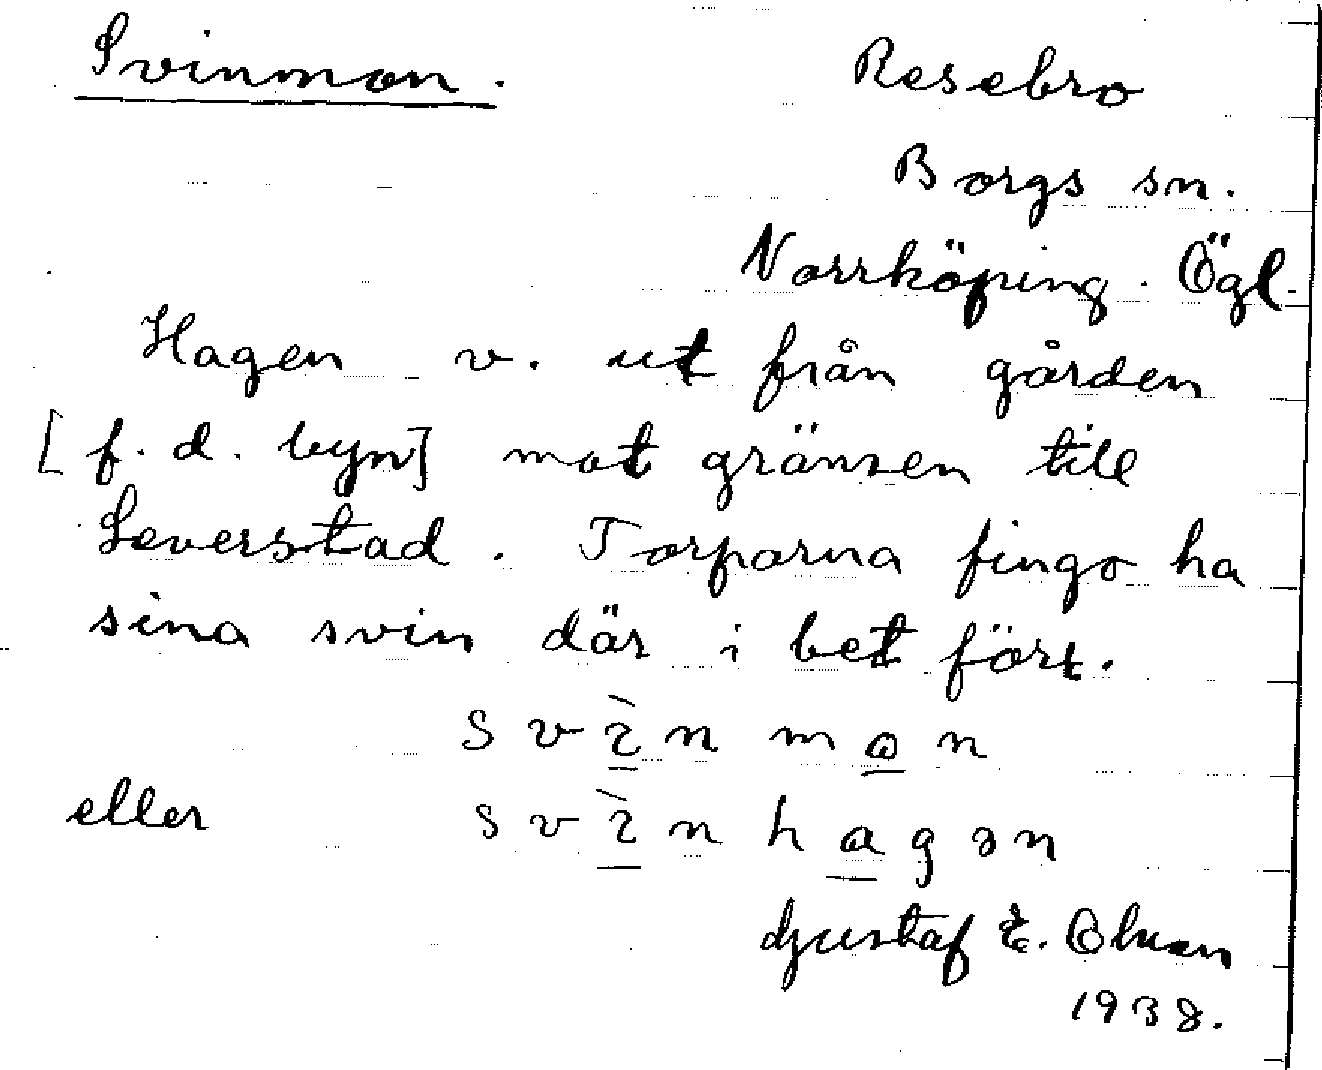 Svinmon.
Resebro
Borgs sn.
Norrköping. Ögl.
Hagen v. ut från gården
[f. d. byn] mot gränsen till
Leverstad. Torparna fingo ha
sina svin där i bet förr.
svìnmon
eller svìnhagən
Gustaf E. Ohson
1938.